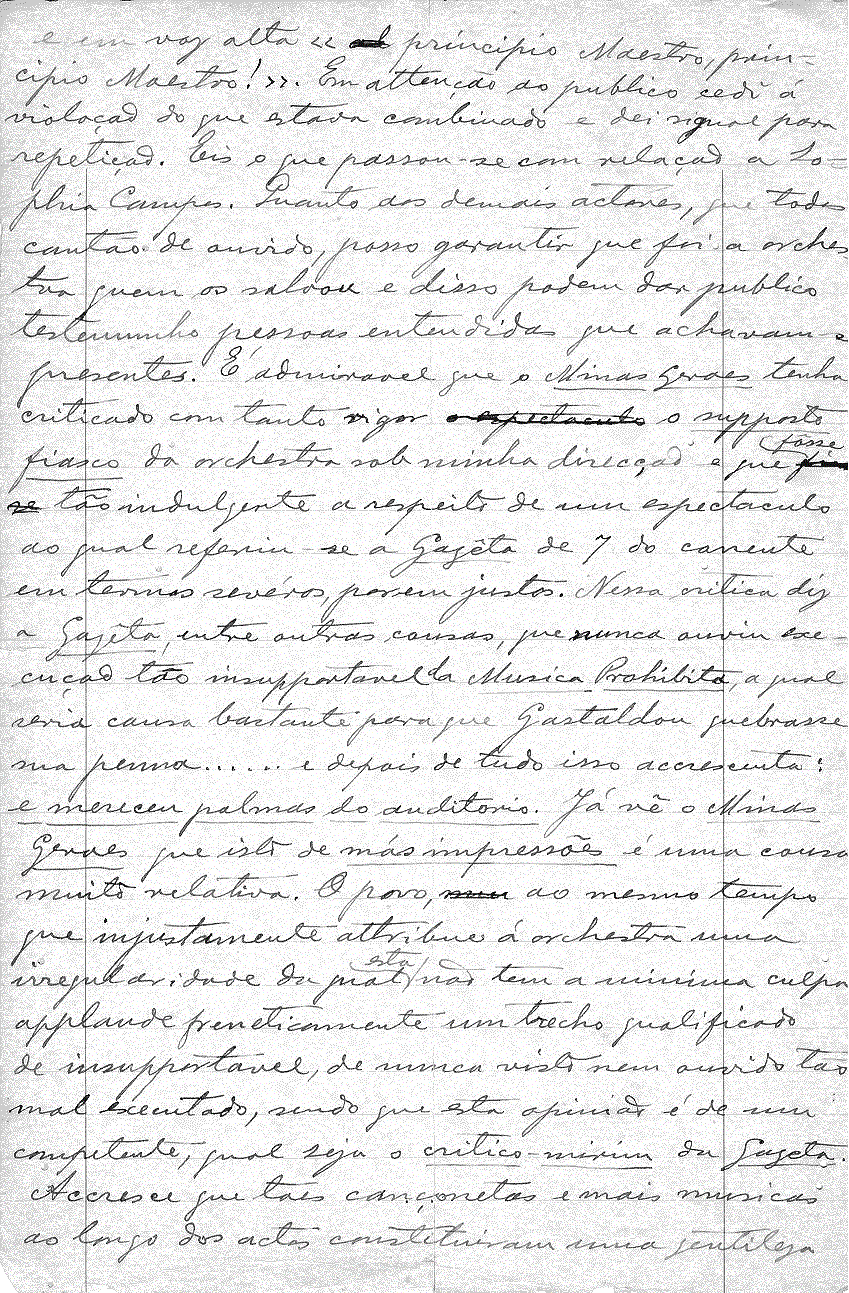 e em voz alta « al principio Maestro, prin-
cipio Maestro! ». Em attenção ao publico cedi á
violaçaõ do que estava combinado e dei signal para
repetiçaõ. Eis o que passou-se com relaçaõ a So-
phia Campos. Quanto aos demais actores, que todos
cantaõ de ouvido, posso garantir que foi a orches
tra quem os salvou e disso podem dar publico
testemunho pessoas entendidas que achavam-s
presentes. É admiravel que o Minas Geraes tenha
criticado com tanto rigor o espectaculo o supposto
fiasco da orchestra sob minha direcçaõ e que fosse
se tão indulgente a respeito de um espectaculo
ao qual referiu-se a Gazêta de 7 do corrente
em termos sevéros, porem justos. Nessa critica diz
a Gazêta, entre outras cousas, que nunca ouviu exe-
cuçaõ tão insupportavel da Musica Prohibita, a qual
seria causa bastante para que Gastaldon quebrasse
sua penna...... e depois de tudo isso accrescenta:
e mereceu palmas do auditorio. Já vê o Minas
Geraes que isto de más impressões é uma cousa
muito relativa. O povo, num ao mesmo tempo
que injustamente attribue á orchestra uma
irregularidade da qual esta naõ tem a minima culpa
applaude freneticamente um trecho qualificado
de insupportavel, de nunca visto nem ouvido tão
mal executado, sendo que esta opiniaõ é de um
competente, qual seja o critico-mirim da Gazeta.
Accresce que taes cançonetas e mais musicas
ao longo dos actos constituiram uma gentileza